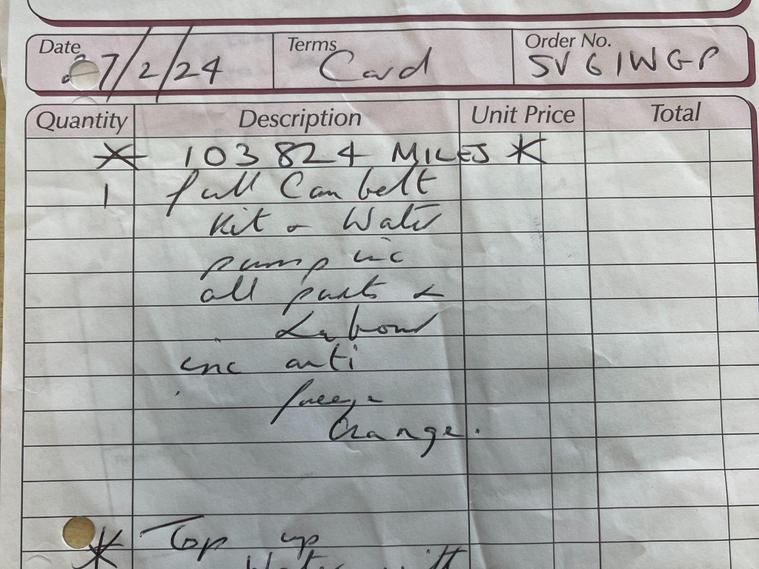 Date Terms Order No.
27/2/24 Card SV61WGP
Quantity Description Unit Price Total
* 103824 MILES *
1 full Cam belt
Kit & Water
pump inc
all parts &
Labour
inc anti
freeze
change.
* Top up
Water with